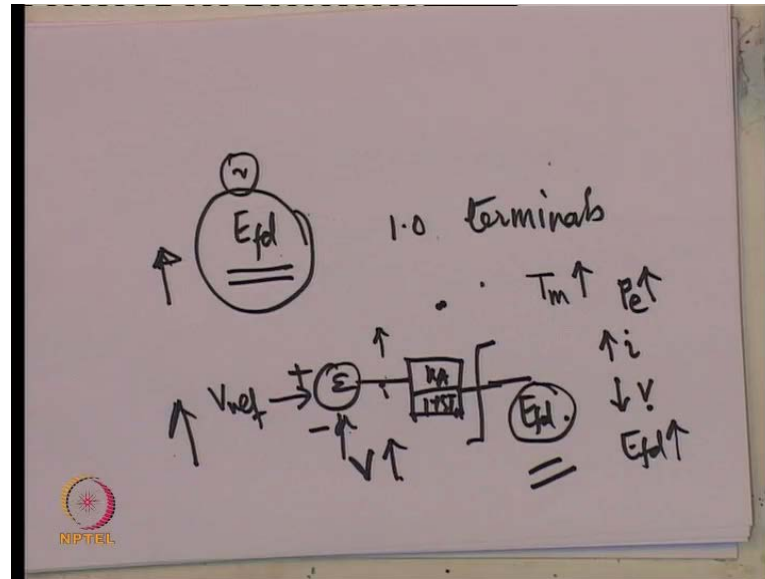 ~
E_fd
1.0 terminals
T_m ↑ P_e ↑
↑ i
↓ V
E_fd ↑
↑ V_ref → + Σ
- ↑ V ↑
E_fd
NPTEL